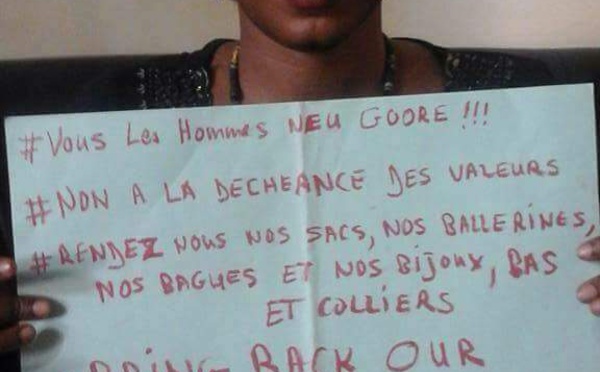 #Vous Les Hommes NEU GOORE !!!
#NON A LA DECHEANCE DES VALEURS
#RENDEZ NOUS NOS SACS, NOS BALLERINES,
NOS BAGUES ET NOS BIJOUX, BAS
ET COLLIERS
BRING BACK OUR